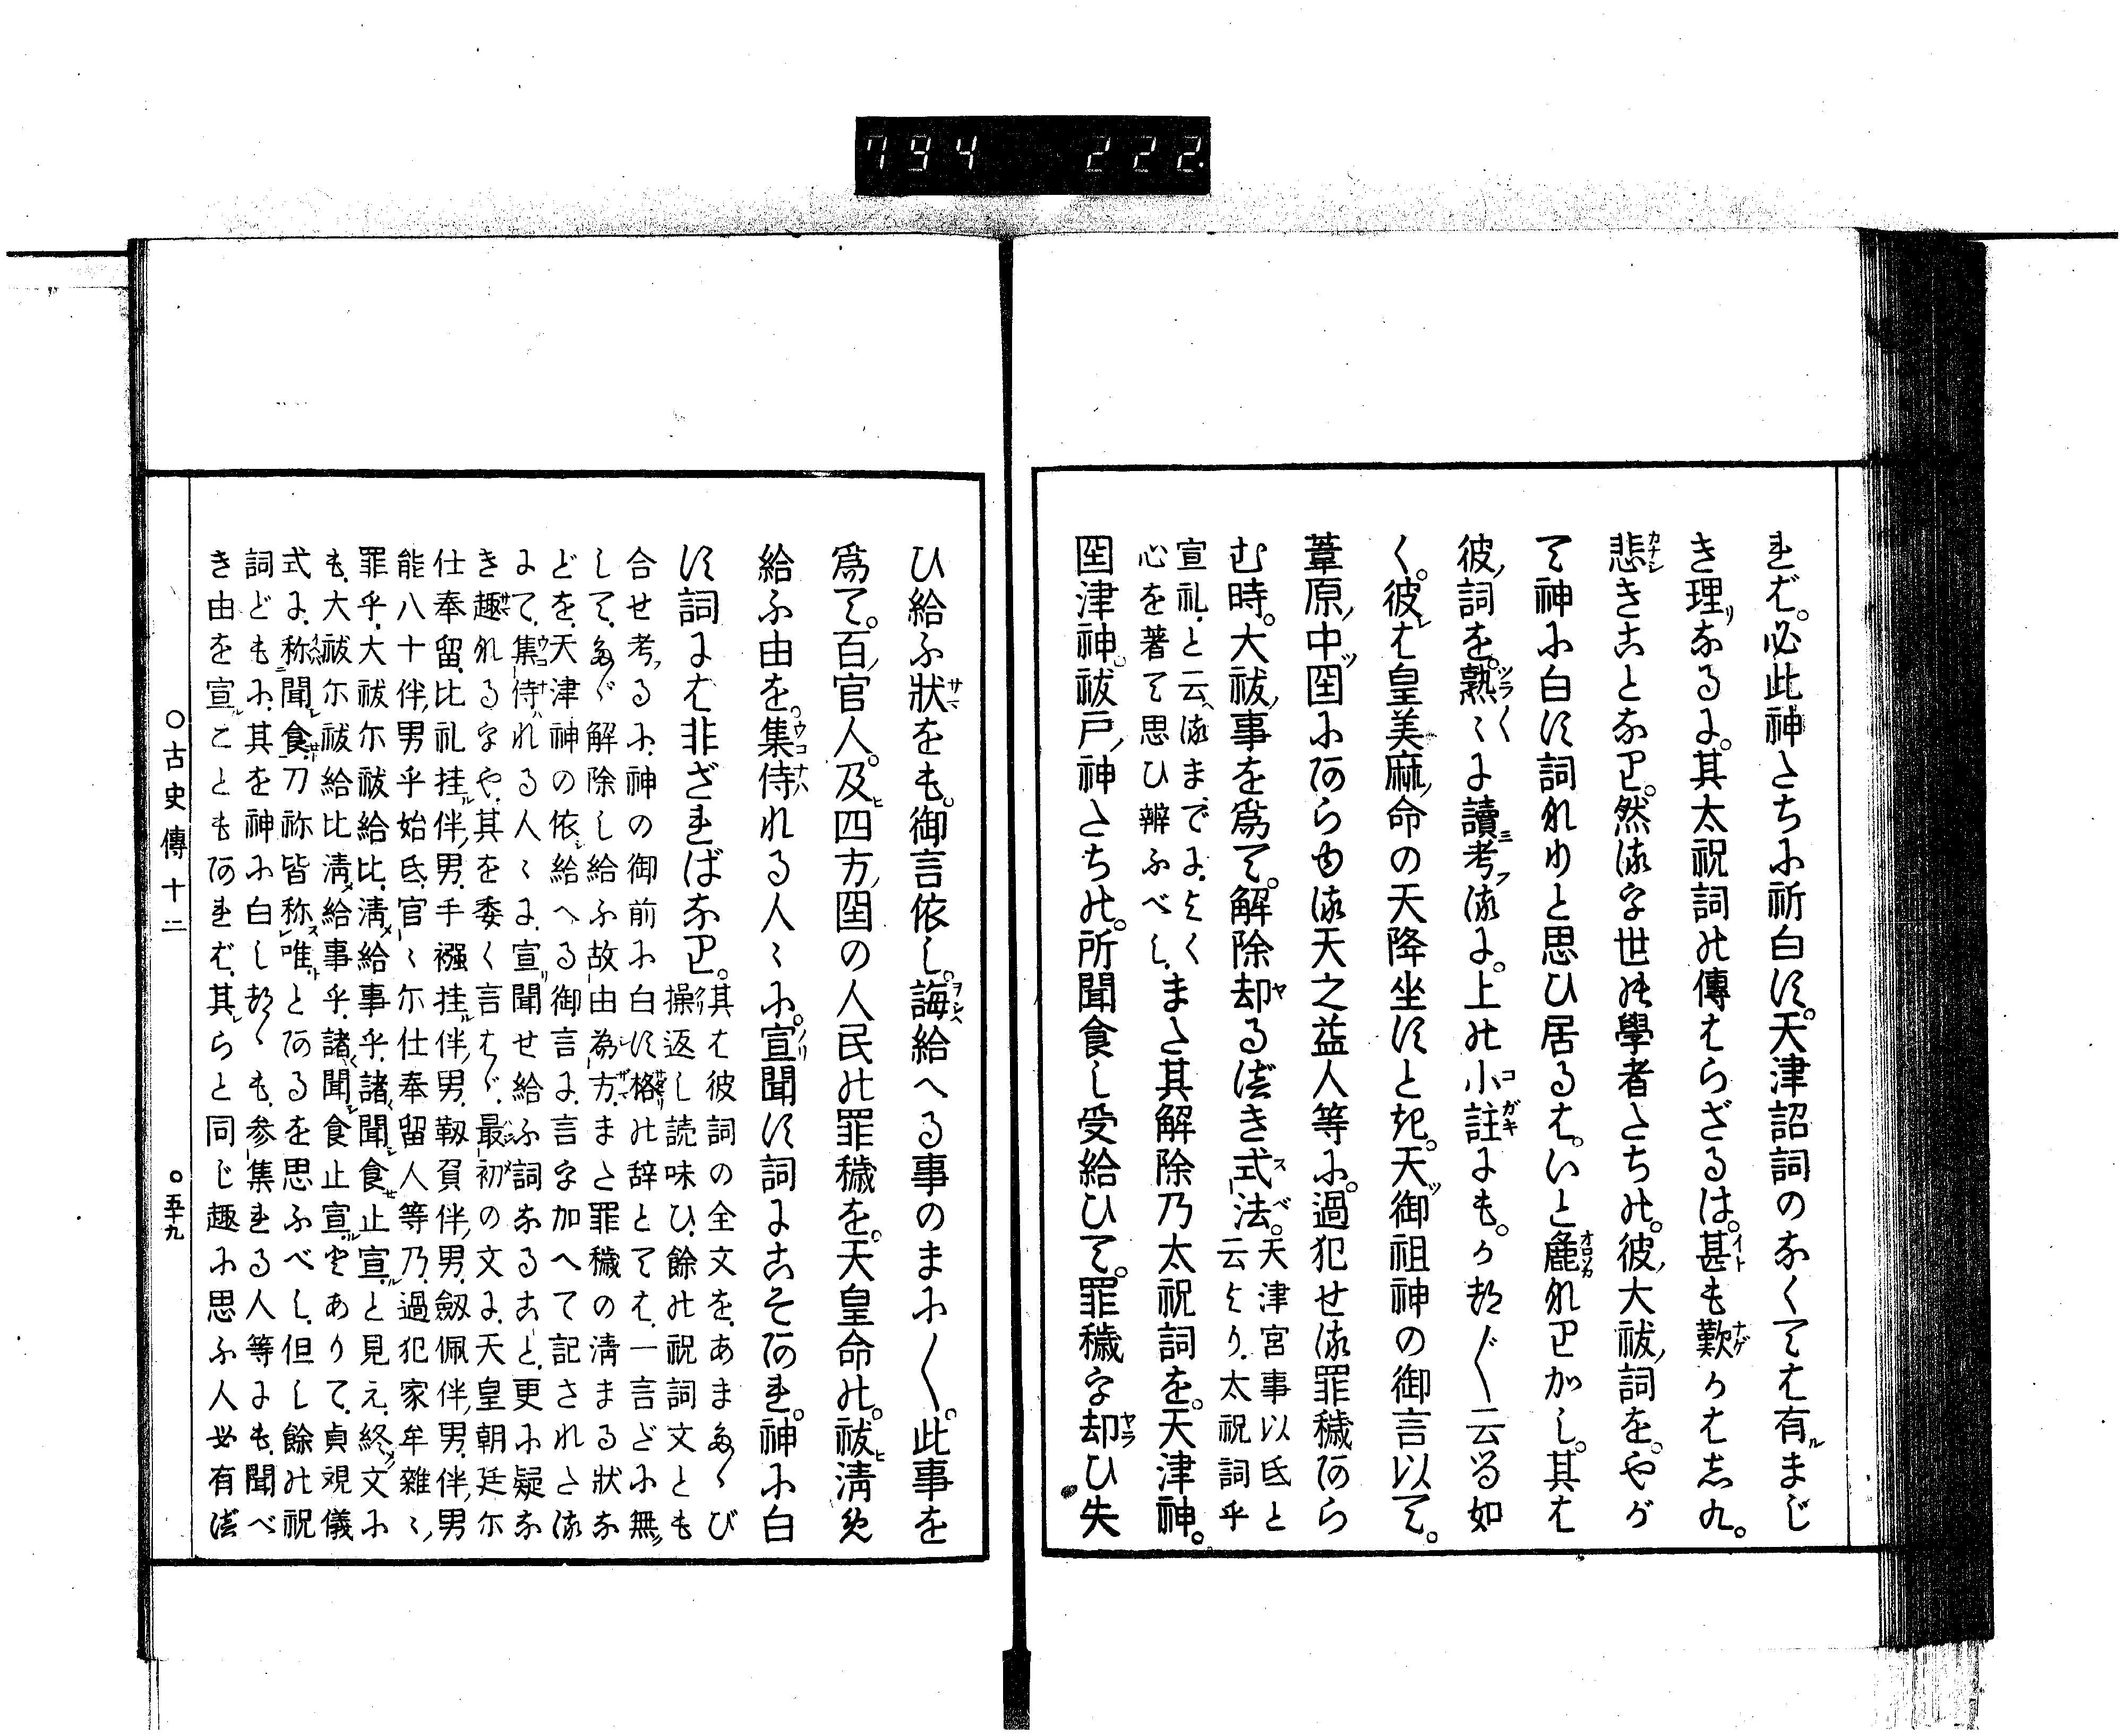 794 222
れば。必此神たちに祈白す。天津詔詞のなくては有まじ
き理なるに。其太祝詞の傳はらざるは。甚も歎かはしく。
悲きことなり。然るを世の學者たちの。彼大祓詞を。やが
て神に白す詞なりと思ひ居るは。いと麁なりかし。其は
彼詞を。熟〻に讀考るに。上の小註にも。かつ〴〵云る如
く。彼は皇美麻命の天降坐すとき。天御祖神の御言以て。
葦原中国にあらゆる天之益人等に。過犯せる罪穢あら
む時。大祓事を爲て。解除却るべき式法。天津宮事以氐と
云より。太祝詞乎
宣礼。と云るまでに。よく
心を著て思ひ辨ふべし。また其解除乃太祝詞を。天津神。
国津神。祓戸神たちの。所聞食し受給ひて。罪穢を却ひ失
ひ給ふ狀をも。御言依し。誨給へる事のまに〳〵。此事を
爲て。百官人。及四方国の人民の罪穢を。天皇命の。祓淸め
給ふ由を。集侍れる人〻に。宣聞す詞にこそあれ。神に白
す詞には非ざればなり。其は彼詞の全文を。あまたゝび
操返し読味ひ。餘の祝詞文とも
合せ考るに。神の御前に白す格の辞とては。一言だに無
して。たゞ解除し給ふ故由爲方。また罪穢の淸まる狀な
どを。天津神の依給へる御言に。言を加へて記されたる
にて。集侍れる人〻に。宣聞せ給ふ詞なること。更に疑な
き趣なるをや。其を委く言はゞ。最初の文に。天皇朝廷尓
仕奉留。比礼挂伴男。手襁挂伴男。靱負伴男。劔佩伴男。伴男
能八十伴男乎始氐。官〻尓仕奉留人等乃。過犯家牟雜〻
罪乎。大祓尓祓給比。淸給事乎。諸聞食止宣。と見え。終文に
も。大祓尓祓給比淸給事乎。諸聞食止宣とありて。貞觀儀
式に。称聞食。刀祢皆称唯。とあるを思ふべし。但し餘の祝
詞どもに。其を神に白しつゝも。参集れる人等にも。聞べ
き由を宣ことも有れば。其らと同じ趣に思ふ人も有べ
○古史傳十二 ○五十九